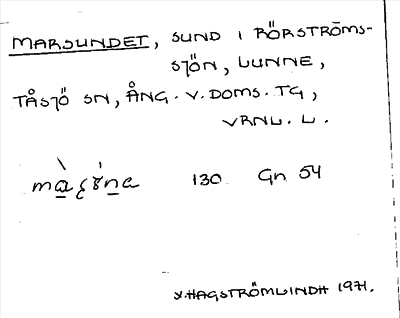 MARSUNDET, SUND I RÖRSTRÖMS-
SJÖN, LUNNE,
TÅSJÖ SN, ÅNG. V. DOMS. TG,
VRNL. L.
130 Gn 54
V. HAGSTRÖM LINDH 1971.